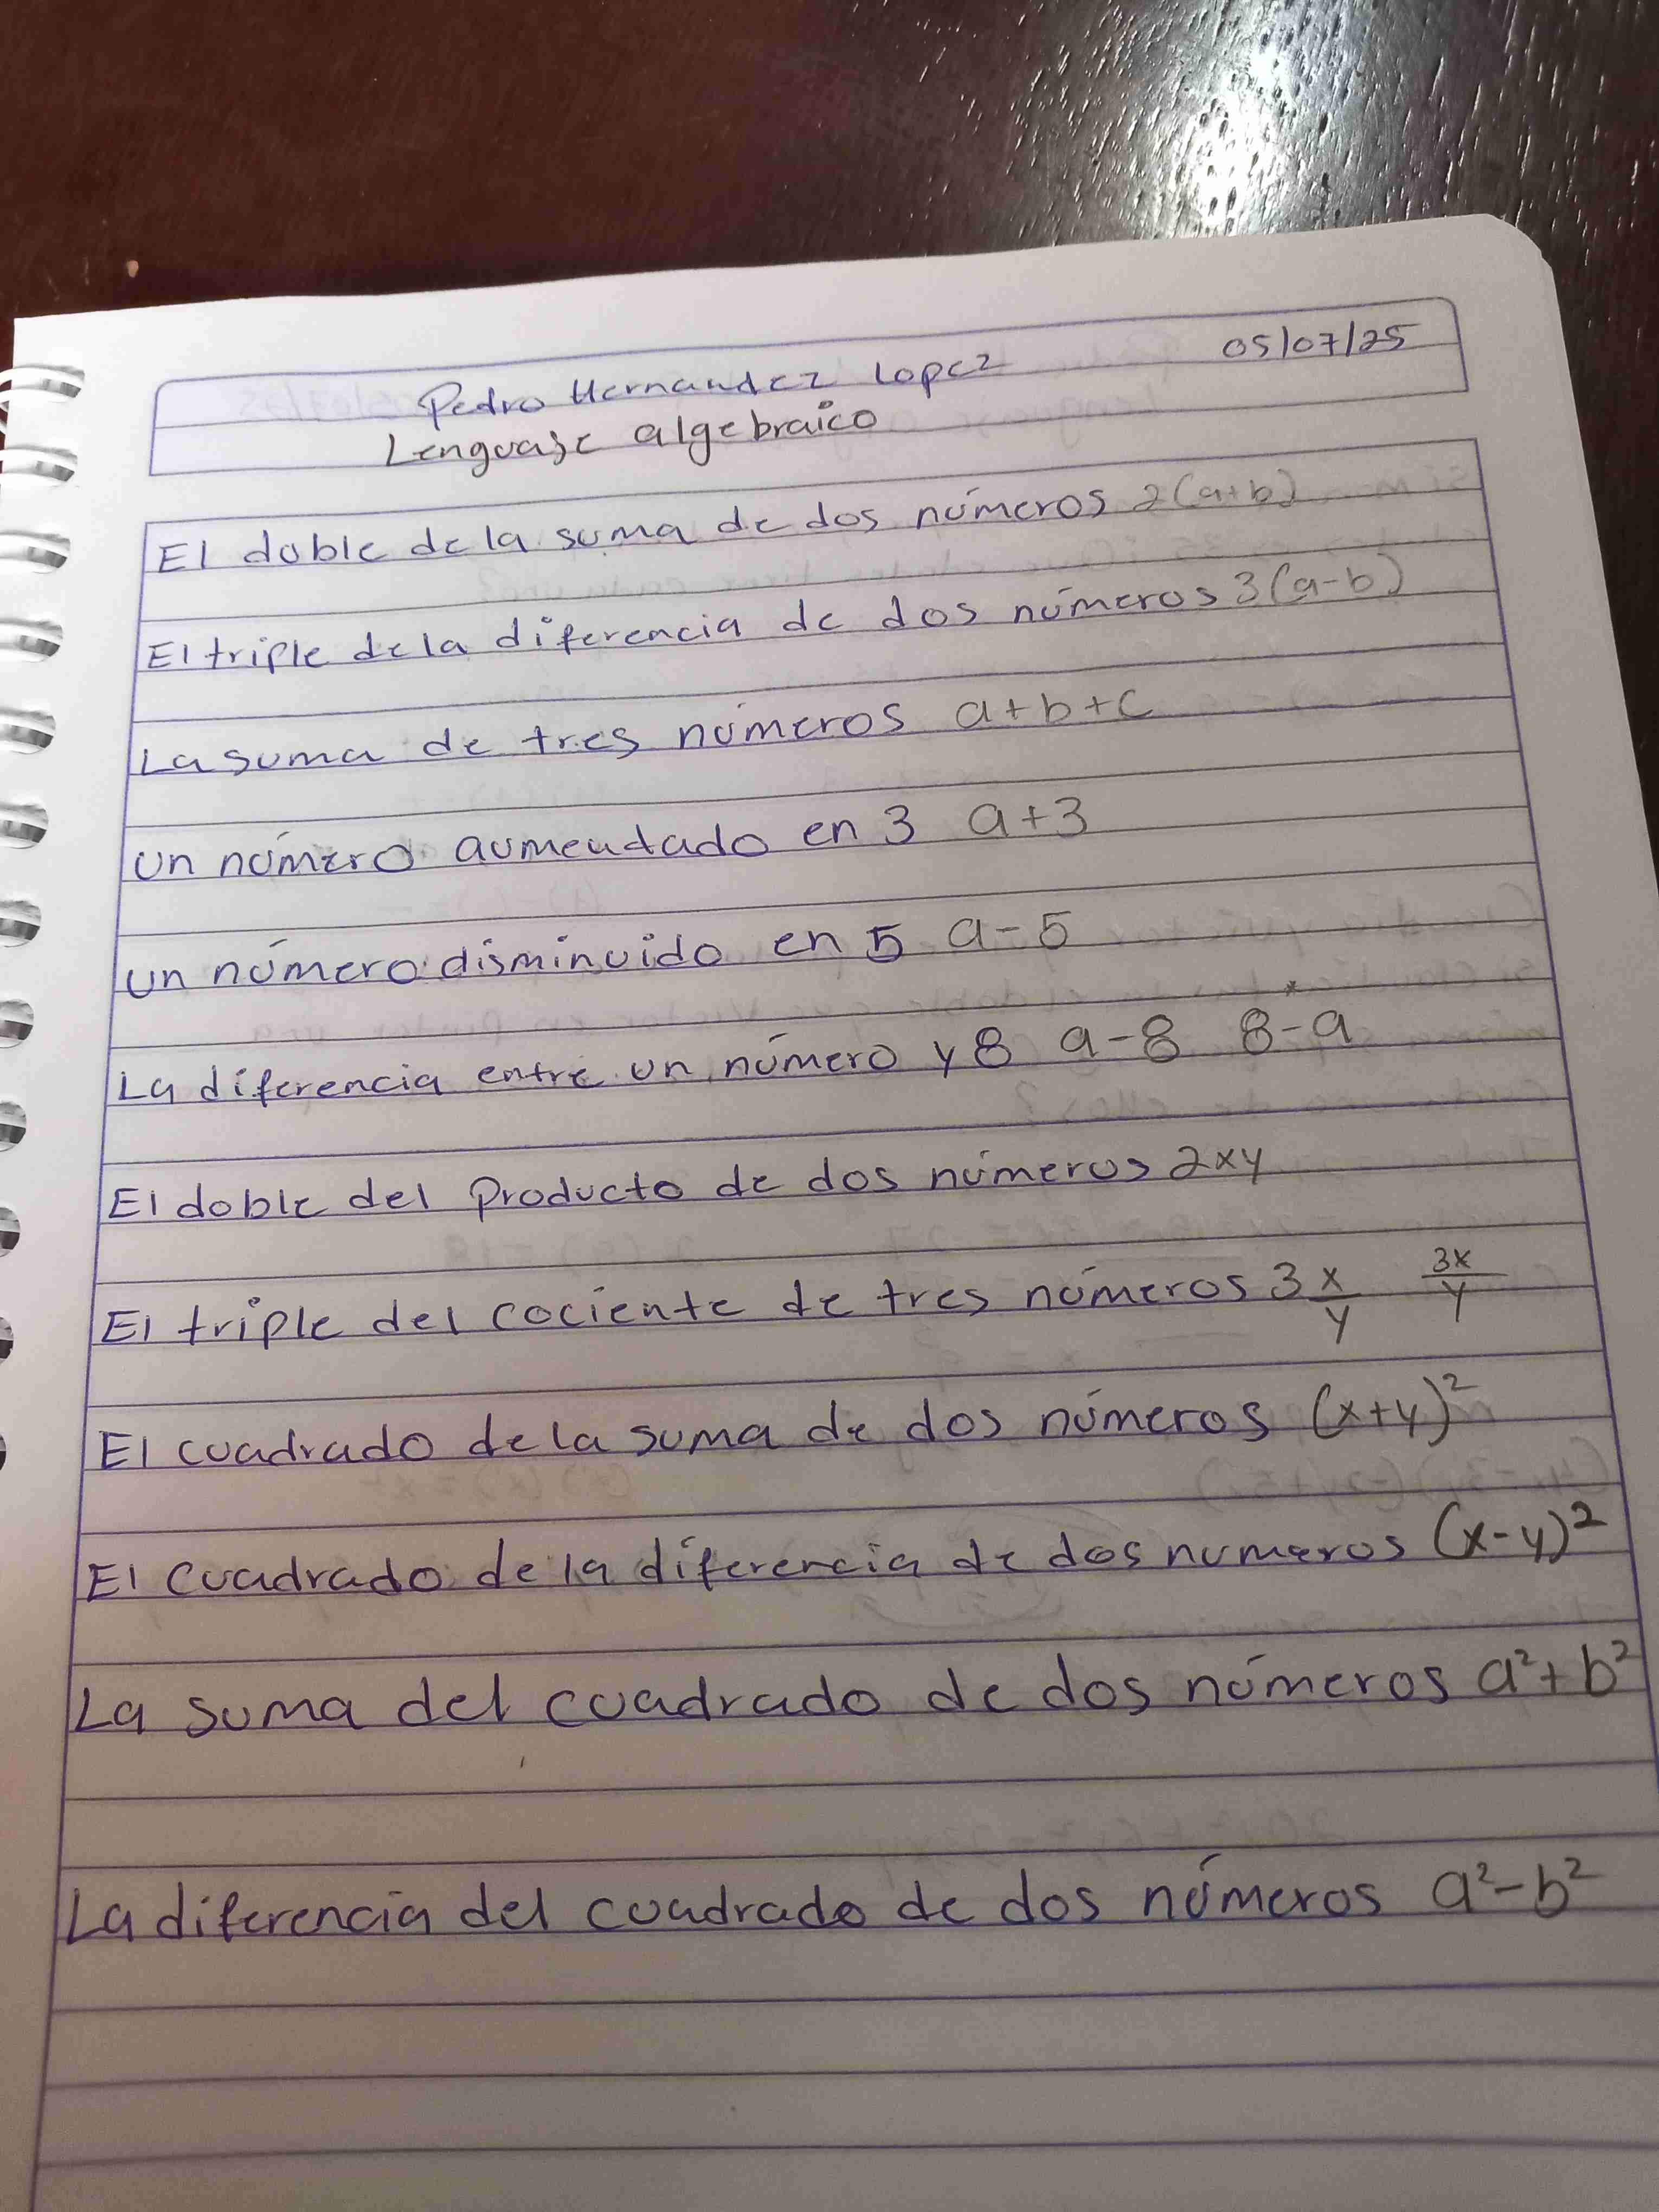 05/07/25
Pedro Hernandez Lopez
Lenguaje algebraico
El doble de la suma de dos números 2(a+b)
El triple de la diferencia de dos números 3(a-b)
La suma de tres números a+b+c
un número aumentado en 3 a+3
un número disminuido en 5 a-5
La diferencia entre un número y 8 a-8 8-a
El doble del producto de dos números 2xy
El triple del cociente de tres números 3x/y 3x/y
El cuadrado de la suma de dos números (x+y)²
El cuadrado de la diferencia de dos numeros (x-y)²
La suma del cuadrado de dos números a²+b²
La diferencia del cuadrado de dos números a²-b²